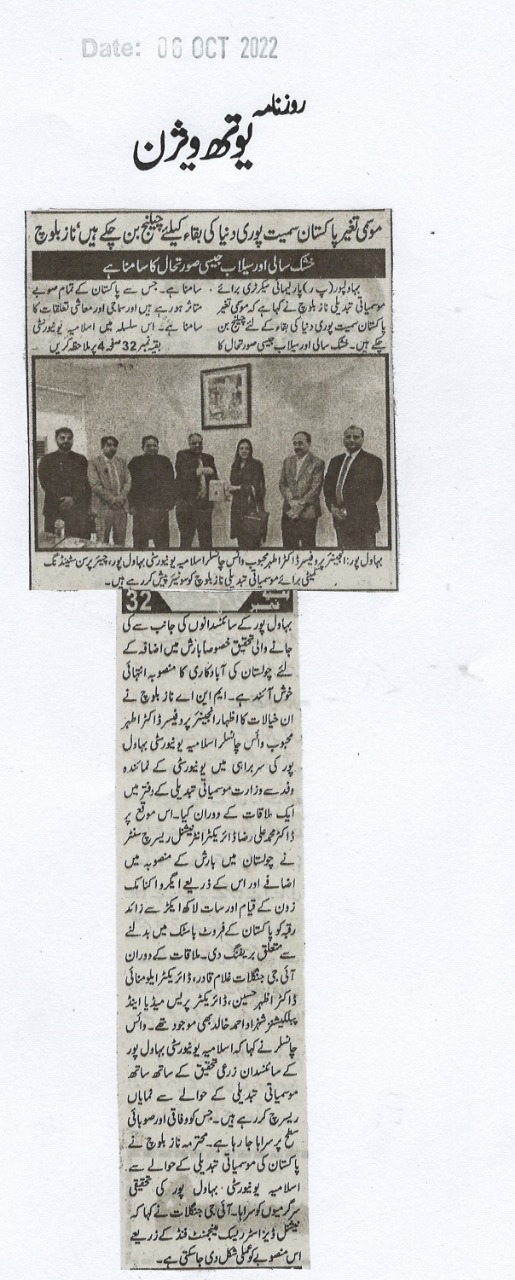 Date: 06 OCT 2022
روزنامہ
یوتھ ویژن
موسمی تغیر پاکستان سمیت پوری دنیا کی بقاء کیلئے چیلنج بن چکے ہیں، ناز بلوچ
خشک سالی اور سیلاب جیسی صورتحال کا سامنا ہے
بہاولپور (پ ر) پارلیمانی سیکرٹری برائے
موسمیاتی تبدیلی ناز بلوچ نے کہا ہے کہ موسمی تغیر
پاکستان سمیت پوری دنیا کی بقاء کے لئے چیلنج بن
چکے ہیں۔ خشک سالی اور سیلاب جیسی صورتحال کا
سامنا ہے۔ جس سے پاکستان کے تمام صوبے
متاثر ہو رہے ہیں اور سماجی اور معاشی تعلقات کا
سامنا ہے۔ اس سلسلہ میں اسلامیہ یونیورسٹی
بقیہ نمبر 32 صفحہ 4 پر ملاحظہ کریں
بہاول پور: انجینئر پروفیسر ڈاکٹر اطہر محبوب وائس چانسلر اسلامیہ یونیورسٹی بہاول پور، چیئر پرسن سٹینڈنگ
کمیٹی برائے موسمیاتی تبدیلی ناز بلوچ کو سونیئر پیش کر رہے ہیں۔
بقیہ نمبر 32
بہاول پور کے سائنسدانوں کی جانب سے کی
جانے والی تحقیق خصوصاً بارش میں اضافہ کے
لئے چولستان کی آباد کاری کا منصوبہ انتہائی
خوش آئند ہے۔ ایم این اے ناز بلوچ نے
ان خیالات کا اظہار انجینئر پروفیسر ڈاکٹر اطہر
محبوب وائس چانسلر اسلامیہ یونیورسٹی بہاول
پور کی سربراہی میں یونیورسٹی کے نمائندہ
وفد سے وزارت موسمیاتی تبدیلی کے دفتر میں
ایک ملاقات کے دوران کیا۔ اس موقع پر
ڈاکٹر محمد علی رضا ڈائریکٹر انٹرنیشنل ریسرچ سنٹر
نے چولستان میں بارش کے منصوبہ میں
اضافے اور اس کے ذریعے ایگرو اکنامک
زون کے قیام اور سات لاکھ ایکڑ سے زائد
رقبہ کو پاکستان کے فروٹ باسکٹ میں بدلنے
سے متعلق بریفنگ دی۔ ملاقات کے دوران
آئی جی جنگلات غلام قادر، ڈائریکٹر ایلومنائی
ڈاکٹر اظہر حسین، ڈائریکٹر پریس میڈیا اینڈ
پبلکیشنز شہزاد احمد خالد بھی موجود تھے۔ وائس
چانسلر نے کہا کہ اسلامیہ یونیورسٹی بہاول پور
کے سائنسدان زرعی تحقیق کے ساتھ ساتھ
موسمیاتی تبدیلی کے حوالے سے نمایاں
ریسرچ کر رہے ہیں۔ جس کو وفاقی اور صوبائی
سطح پر سراہا جا رہا ہے۔ محترمہ ناز بلوچ نے
پاکستان کی موسمیاتی تبدیلی کے حوالے سے
اسلامیہ یونیورسٹی بہاول پور کی تحقیقی
سرگرمیوں کو سراہا۔ آئی جی جنگلات نے کہا کہ
نیشنل ڈیزاسٹر رسک مینجمنٹ فنڈ کے ذریعے
اس منصوبے کو عملی شکل دی جا سکتی ہے۔